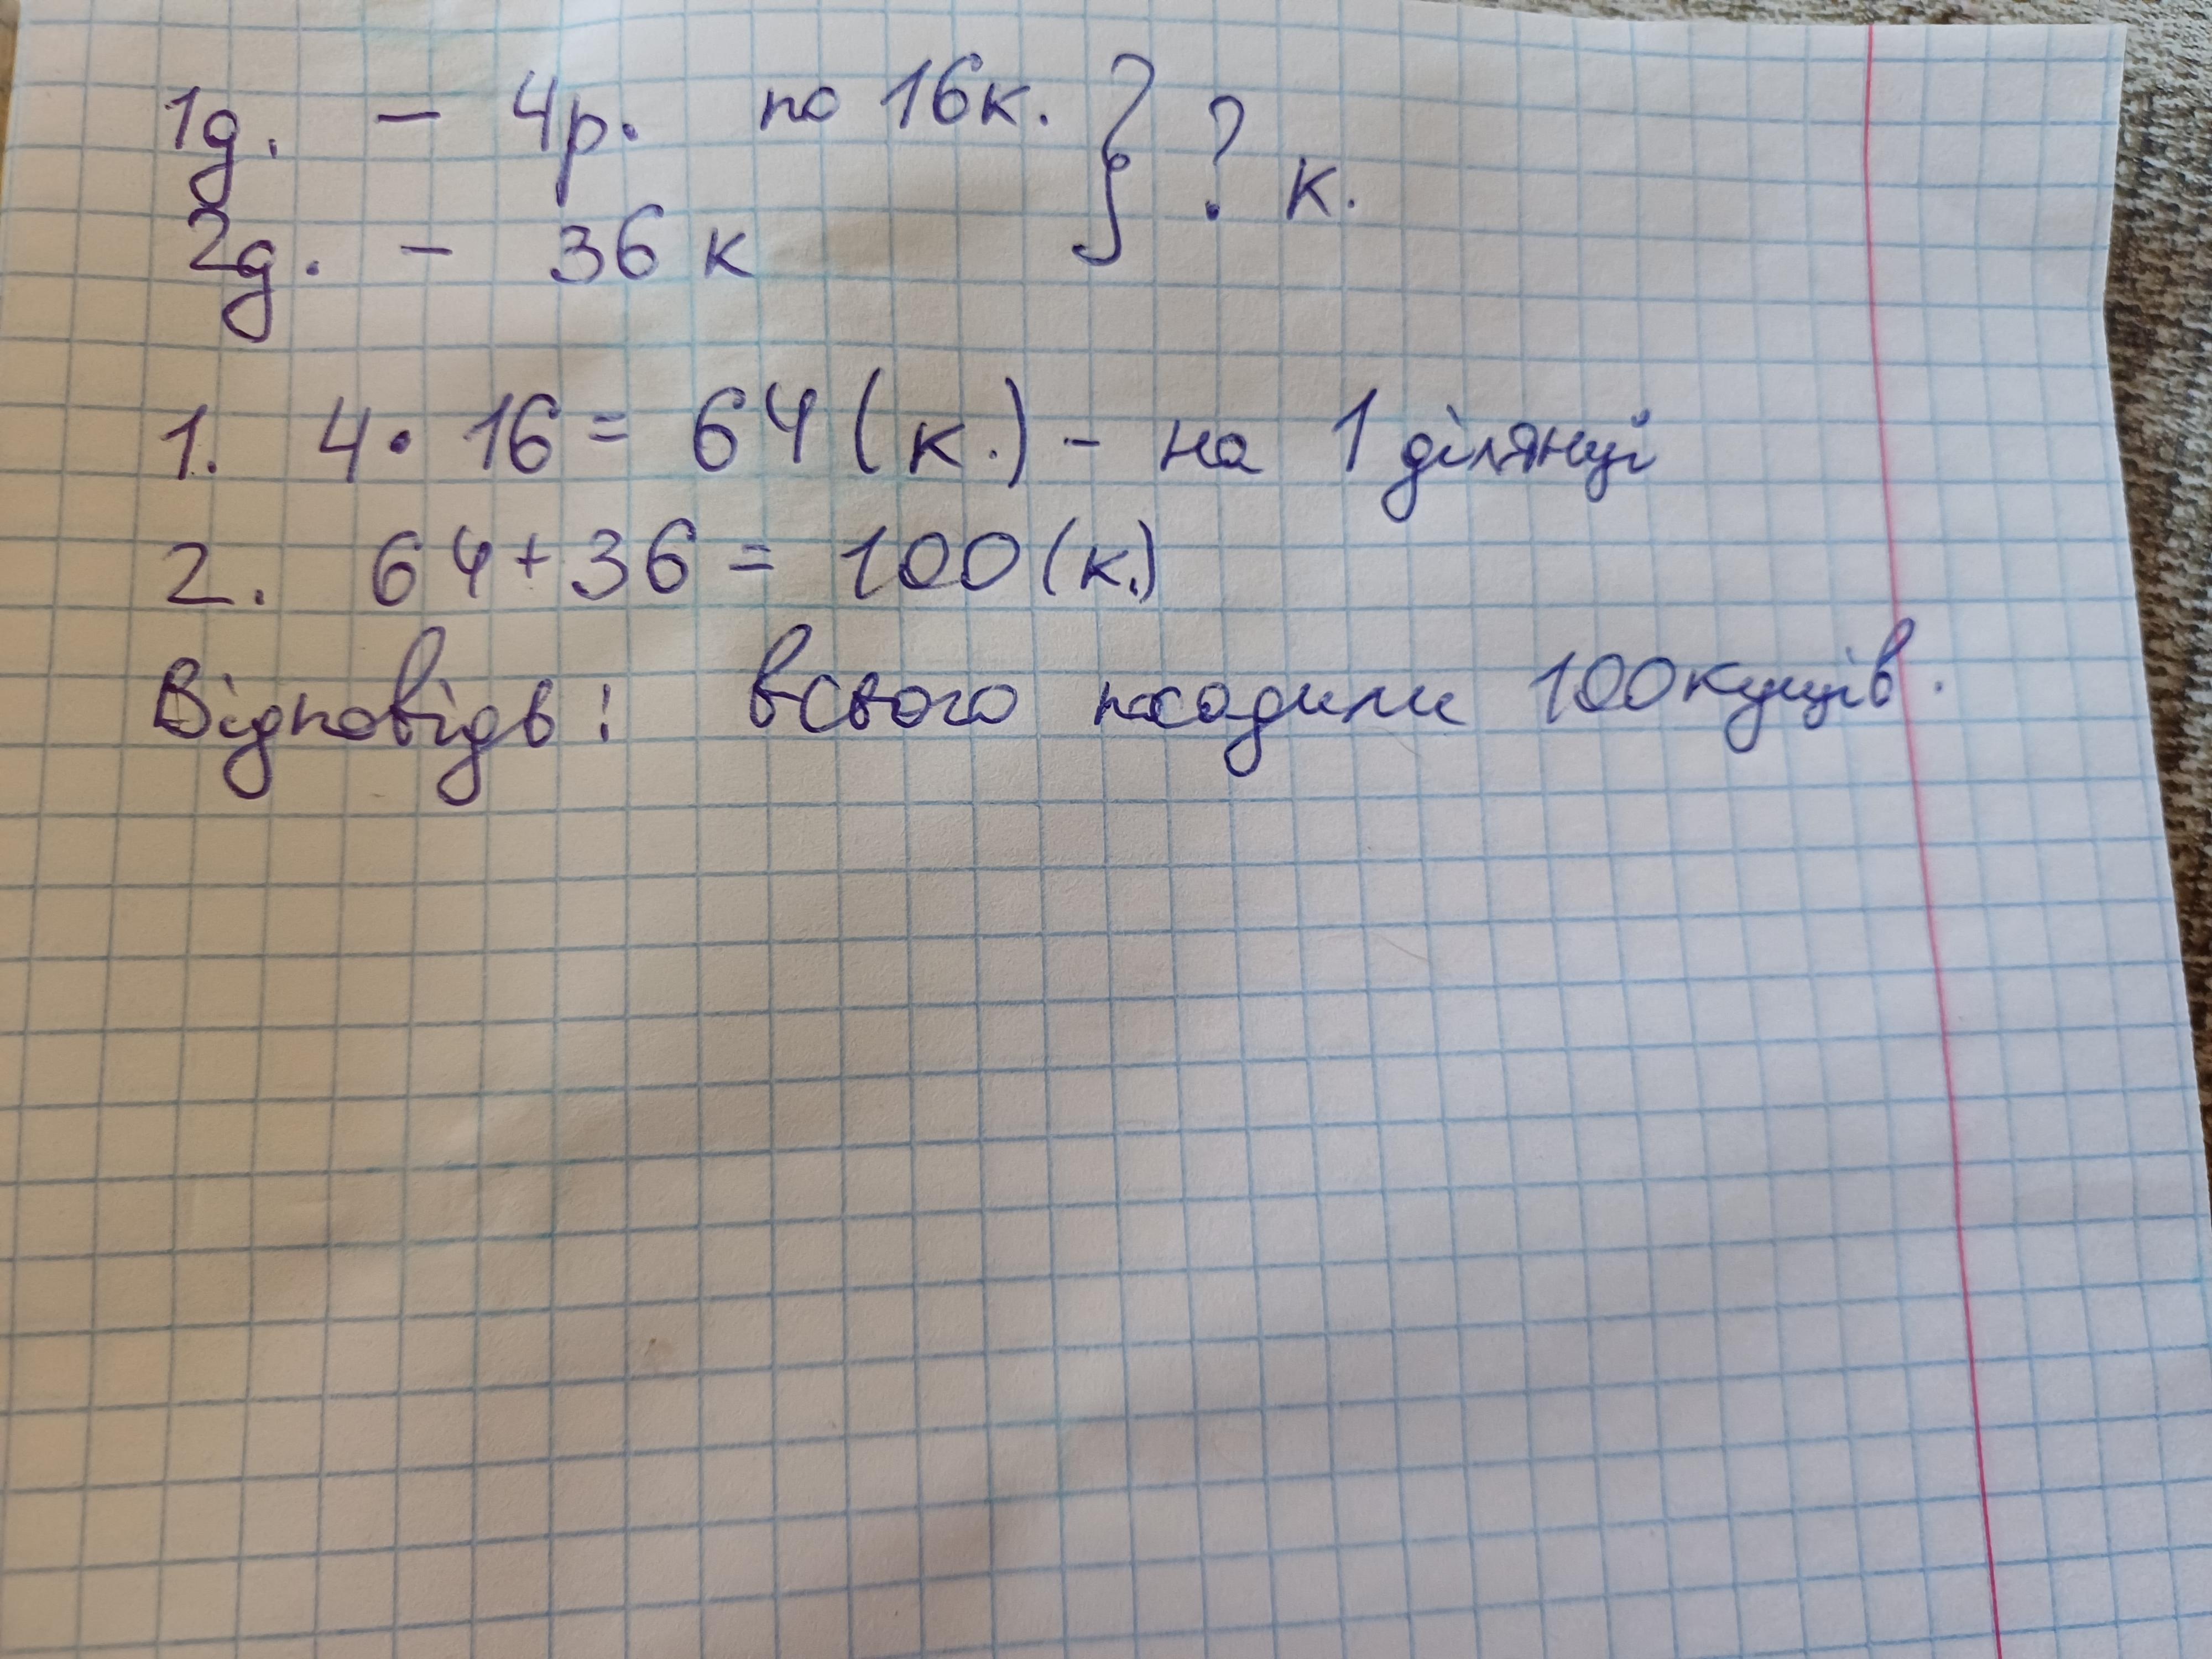 1д. - 4р. по 16к. } ? к.
2д. - 36 к
1. 4 · 16 = 64 (к.) - на 1 ділянці
2. 64 + 36 = 100 (к.)
Відповідь: всього посадили 100 кущів.